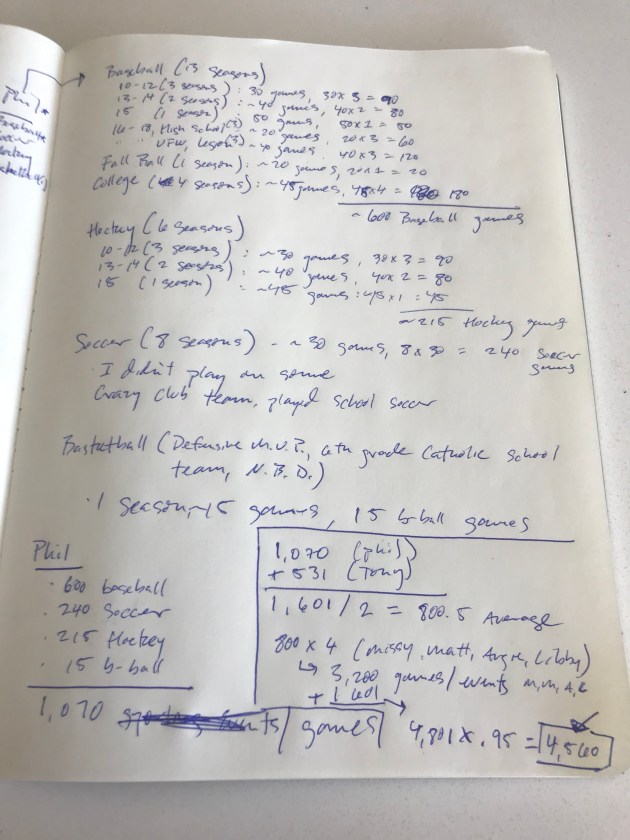 Phil
Baseball
Soccer
Hockey
Baseball (13 seasons)
10-12 (3 seasons) : 30 games, 30x3 = 90
13-14 (2 seasons) : ~40 games, 40x2 = 80
15 (1 season) : 80 games, 80x1 = 80
16-18, High School (3) ~20 games, 20x3 = 60
" " VFW, Legion (3) ~40 games, 40x3 = 120
Fall Ball (1 season): ~20 games, 20x1 = 20
College (4 seasons): ~45 games, 45x4 = 180
~600 Baseball games
Hockey (6 seasons)
10-12 (3 seasons) : ~30 games, 30x3 = 90
13-14 (2 seasons) : ~40 games, 40x2 = 80
15 (1 season) : ~45 games: 45x1 = 45
~215 Hockey games
Soccer (8 seasons) - ~30 games, 8x30 = 240 soccer games
· I didn't play on some
Crazy club team, played school soccer
Basketball (Defensive M.V.P., 6th grade Catholic school
team, N.B.D.)
· 1 season, ~15 games, 15 b-ball games
Phil
· 600 baseball
· 240 Soccer
· 215 Hockey
· 15 b-ball
1,070 / games
1,070 (Phil)
+ 531 (Tony)
1,601/2 = 800.5 Average
800 x 4 (missy, matt, Angie, Libby)
↳ 3,200 games/events M, M, A, L
+ 1601
4,801 x .95 = 4,560